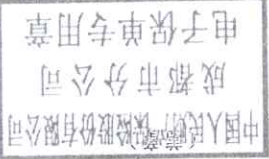 中国人民财产保险股份有限公司
成都市分公司
电子保单专用章